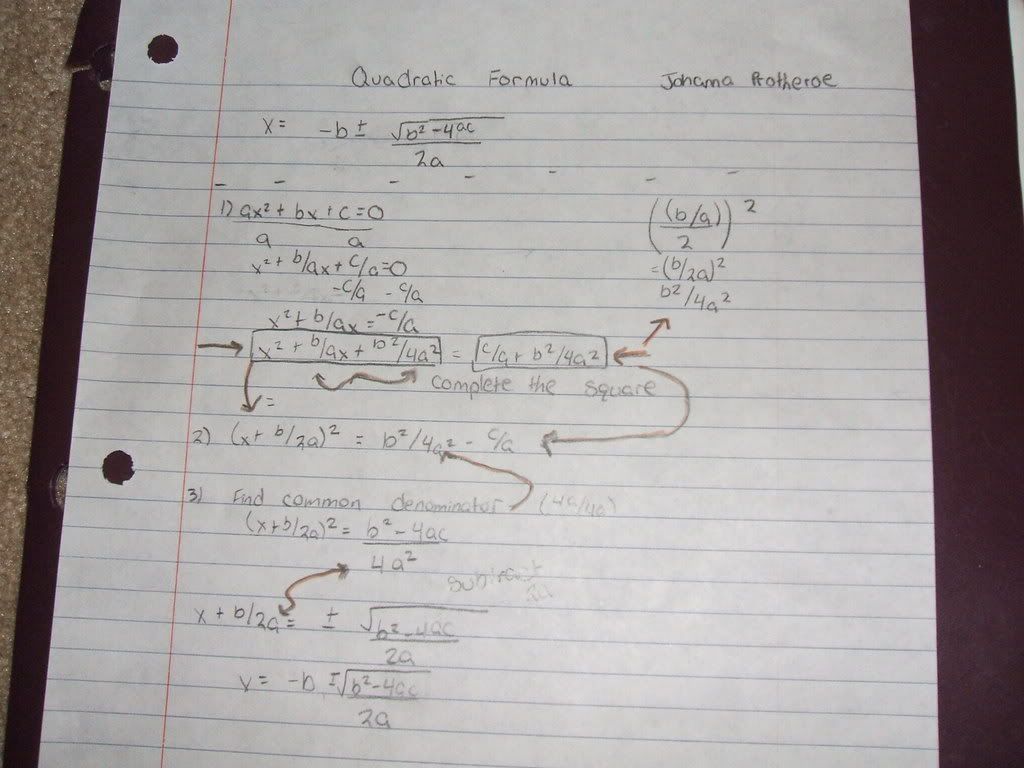 Quadratic Formula Johanna Protheroe
x = -b ± √b² - 4ac
2a
1) ax² + bx + c = 0
a a
x² + b/ax + c/a = 0
-c/a -c/a
x² + b/ax = -c/a
((b/a)/2)²
= (b/2a)²
b²/4a²
x² + b/ax + b²/4a² = c/a + b²/4a²
complete the square
=
2) (x + b/2a)² = b²/4a² - c/a
3) Find common denominator (4a/4a)
(x + b/2a)² = b² - 4ac
4a²
subtract
2a
x + b/2a = ± √b² - 4ac
2a
x = -b ± √b² - 4ac
2a